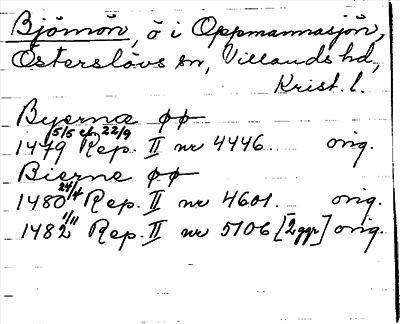 Björnön, ö i Oppmannasjön,
Österslövs sn, Villands hd,
Krist. l.
Byernæ øø
1479 5/5 ef. 22/9 Rep. II nr 4446. orig.
Bierne øø
1480 24/4 Rep. II nr 4601. orig.
1482 1/11 Rep. II nr 5106 [2ggr] orig.